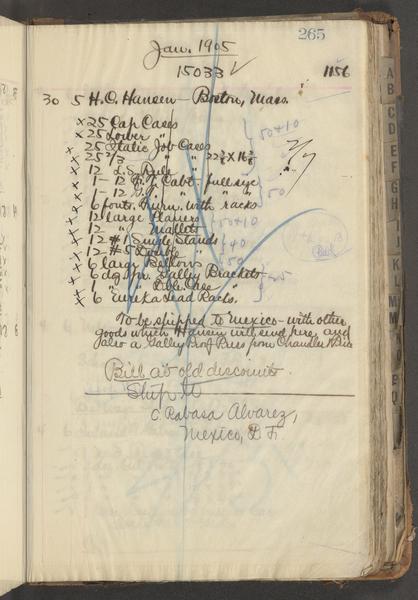 265
Jan. 1905
15033 ✓ 1156
30 5 H.C. Hansen — Boston, Mass.
x 25 Cap Cases
x 25 Lower "
x 25 Italic Job Cases
x 25 2/3 " " 22 x 16
x 12 L.S. Rule "
x 1 - 12 Cabt. full size
x 1 - 12 " "
x 6 fonts. Furn. with racks
x 12 large Planers
x 12 " Mallets
x 12 #1 Single Stands
x 12 #5 Double "
x 6 large Bellows
x 6 dz. pr. Galley Brackets
x 1 " Dble. Case "
x 6 Eureka Lead Racks.
50+10
50
50+10
40
50
25
To be shipped to Mexico with other
goods which Hansen will send here, and
also a Galley Prof Press from Chandler & Price
Bill at old discounts.
Ship to
C. Rabasa Alvarez,
Mexico, D.F.
A
B
C
D
E
F
G
H
I
J
K
L
M